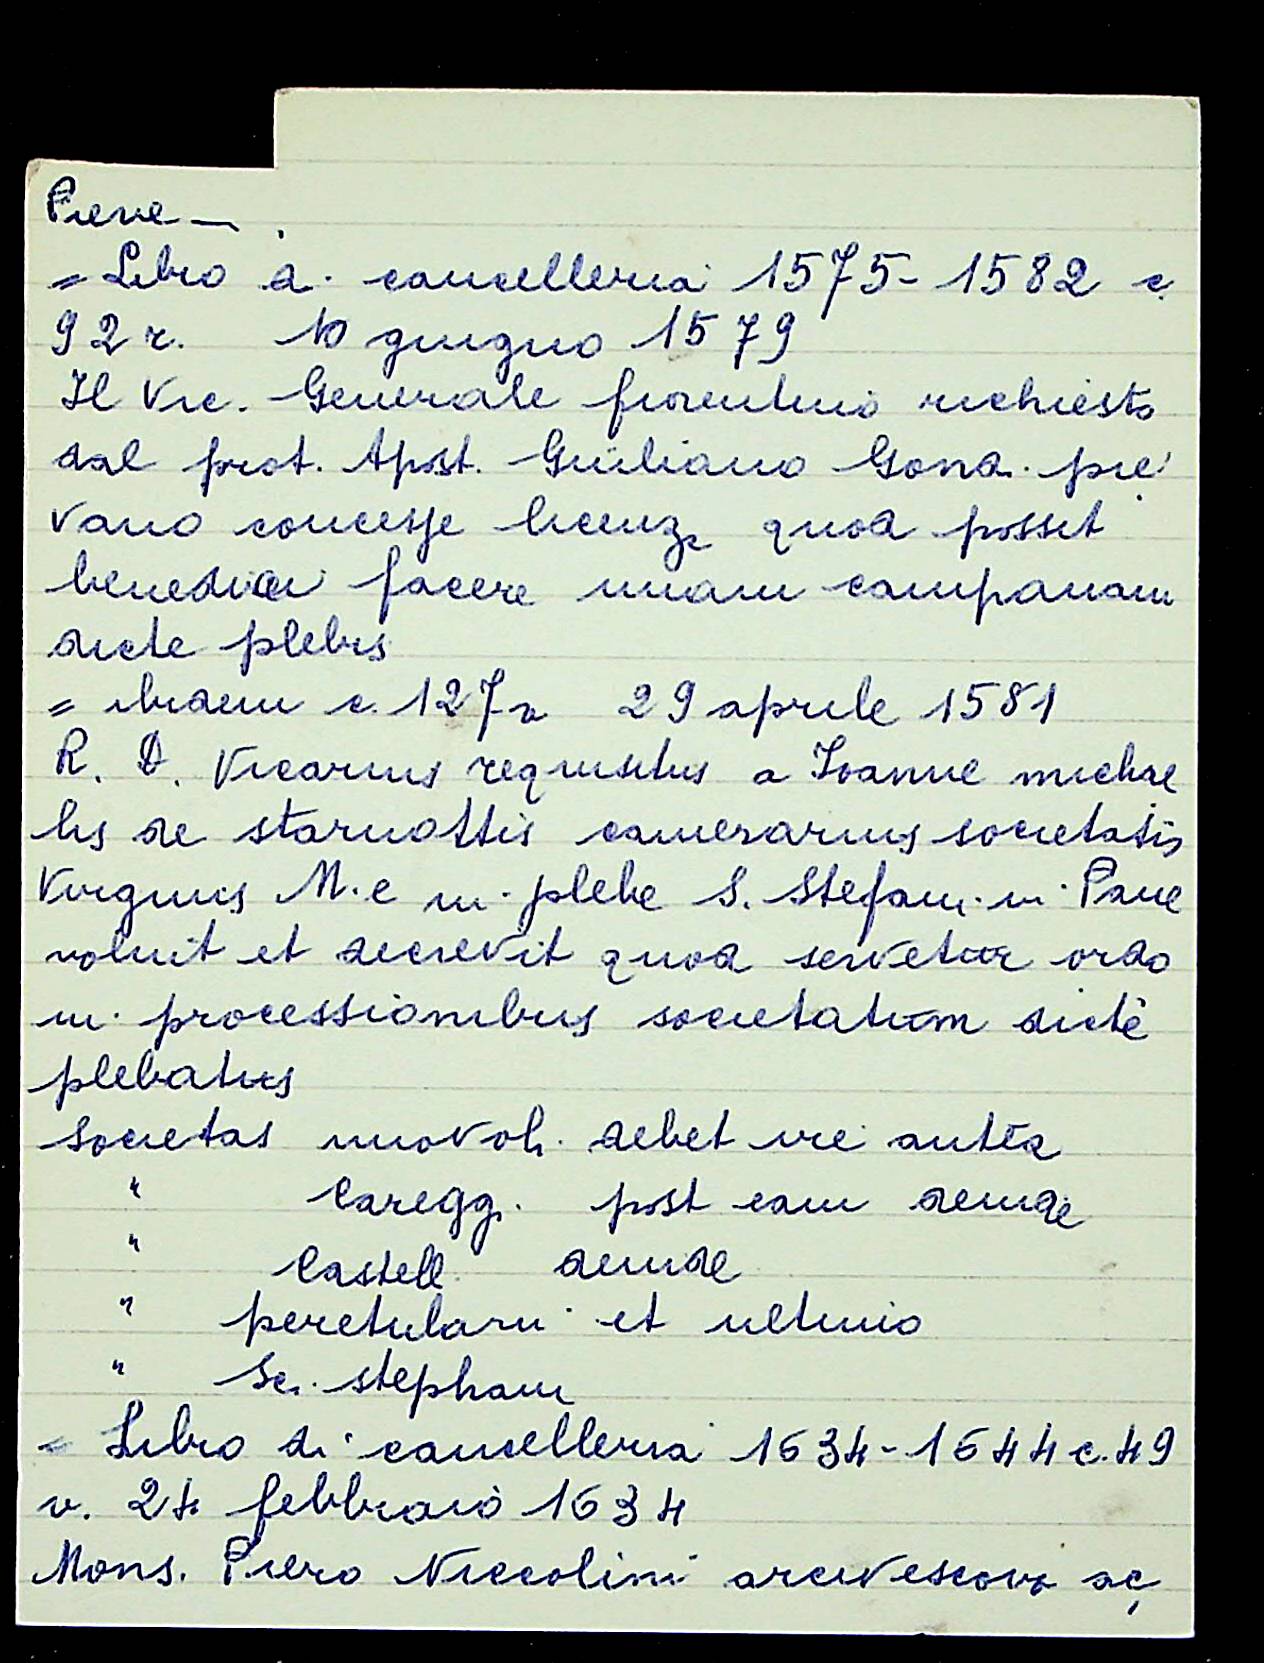 Pieve —
= Libro di cancelleria 1575-1582 c.
92 r. 10 giugno 1579
Il Vic. Generale fiorentino richiesto
dal prot. Apost. Giuliano Gond. pie
vano concesse licenz. quod possit
benedici facere unam campanam
dicte plebis
= ibidem c. 127 29 aprile 1581
R. D. Vicarius requisitus a Ioanne michae
lis de starnottis camerarius societatis
Virginis M. e in plebe S. Stefani in Pane
voluit et decrevit quod servetur ordo
in processionibus societatum dicte
plebatus
Societas nuovol. debet ire antea
" Caregg. post eam deinde
" Castell. deinde
" peretularii et ultimo
" Sci. stephani
= Libro di cancelleria 1634-1644 c. 49
v. 24 febbraio 1634
Mons. Piero Niccolini arcivescovo